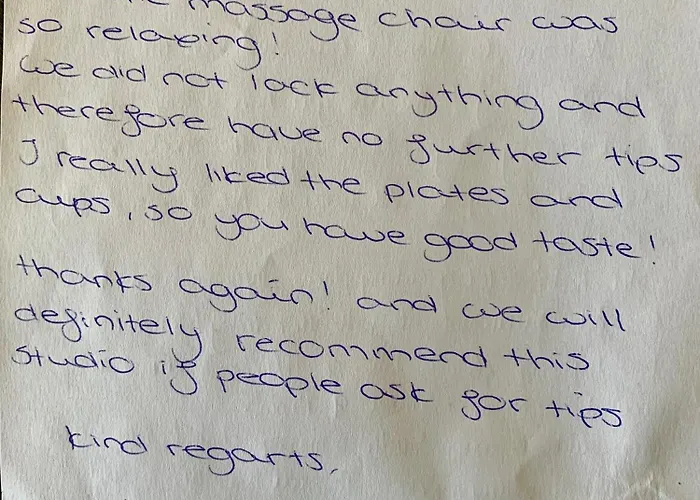 massage chair was
so relaxing!
we did not lack anything and
therefore have no further tips
I really liked the plates and
cups, so you have good taste!
thanks again! and we will
definitely recommend this
studio if people ask for tips
kind regarts,